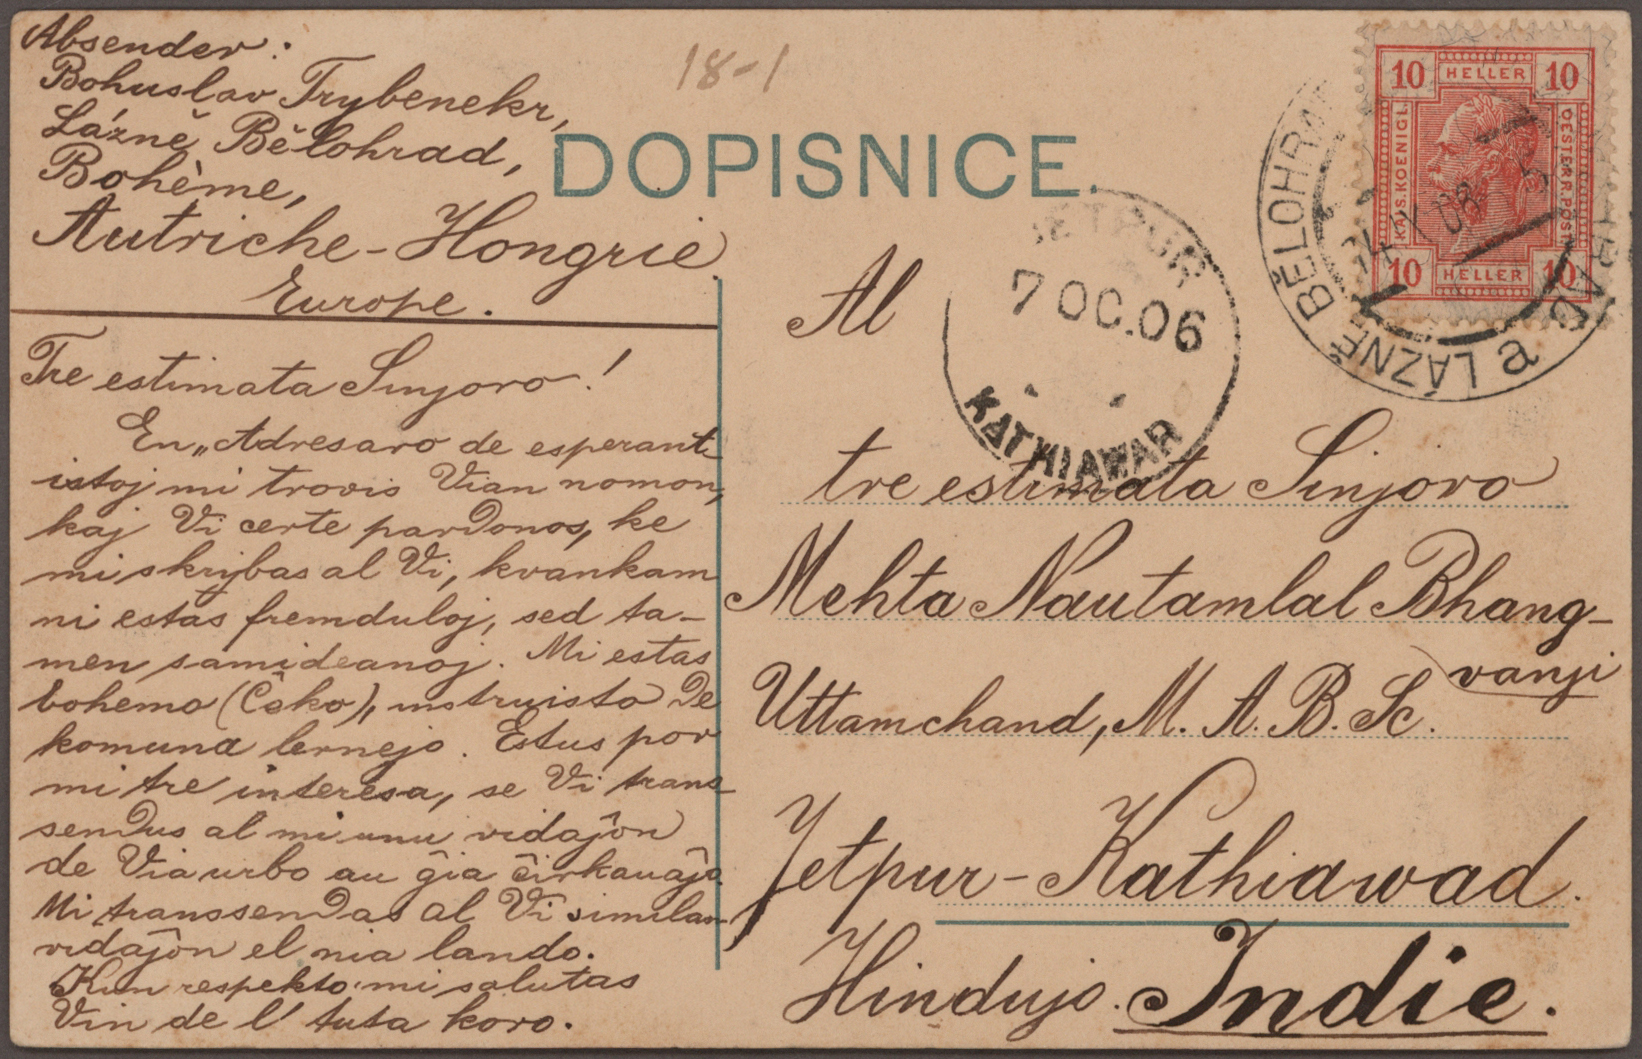 Absender:
Bohuslav Trybenekr,
Lázně Bělohrad,
Bohème,
Autriche-Hongrie
Europe.
18-1
DOPISNICE.
10 HELLER 10
KAIS. KOENIGL.
OESTERR. POST
10 HELLER 10
LÁZNĚ BĚLOHRAD
a
JETPUR
7 OC.06
KATHIAWAR
Tre estimata Sinjoro!
En „Adresaro de esperant-
istoj mi trovis Vian nomon,
kaj Vi certe pardonos, ke
mi skrybas al Vi, kvankam
ni estas fremduloj, sed ta-
men samideanoj. Mi estas
bohemo (Ĉeko), instruisto de
komuna lernejo. Estus por
mi tre interesa, se Vi trans-
sendus al mi unu vidaĵon
de Via urbo au ĝia ĉirkauaĵo.
Mi transsendas al Vi similan
vidaĵon el nia lando.
Kun respekto mi salutas
Vin de l' tuta koro.
Al
tre estimata Sinjoro
Mehta Nautamlal Bhang-
vanji
Uttamchand, M. A. B. Sc.
Jetpur-Kathiawad.
Hindujo. Indie.